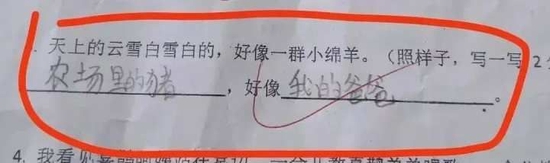 天上的云雪白雪白的，好像一群小绵羊。（照样子，写一写 2
农场里的猪，好像我的爸爸。
4. 我看见喜鹊